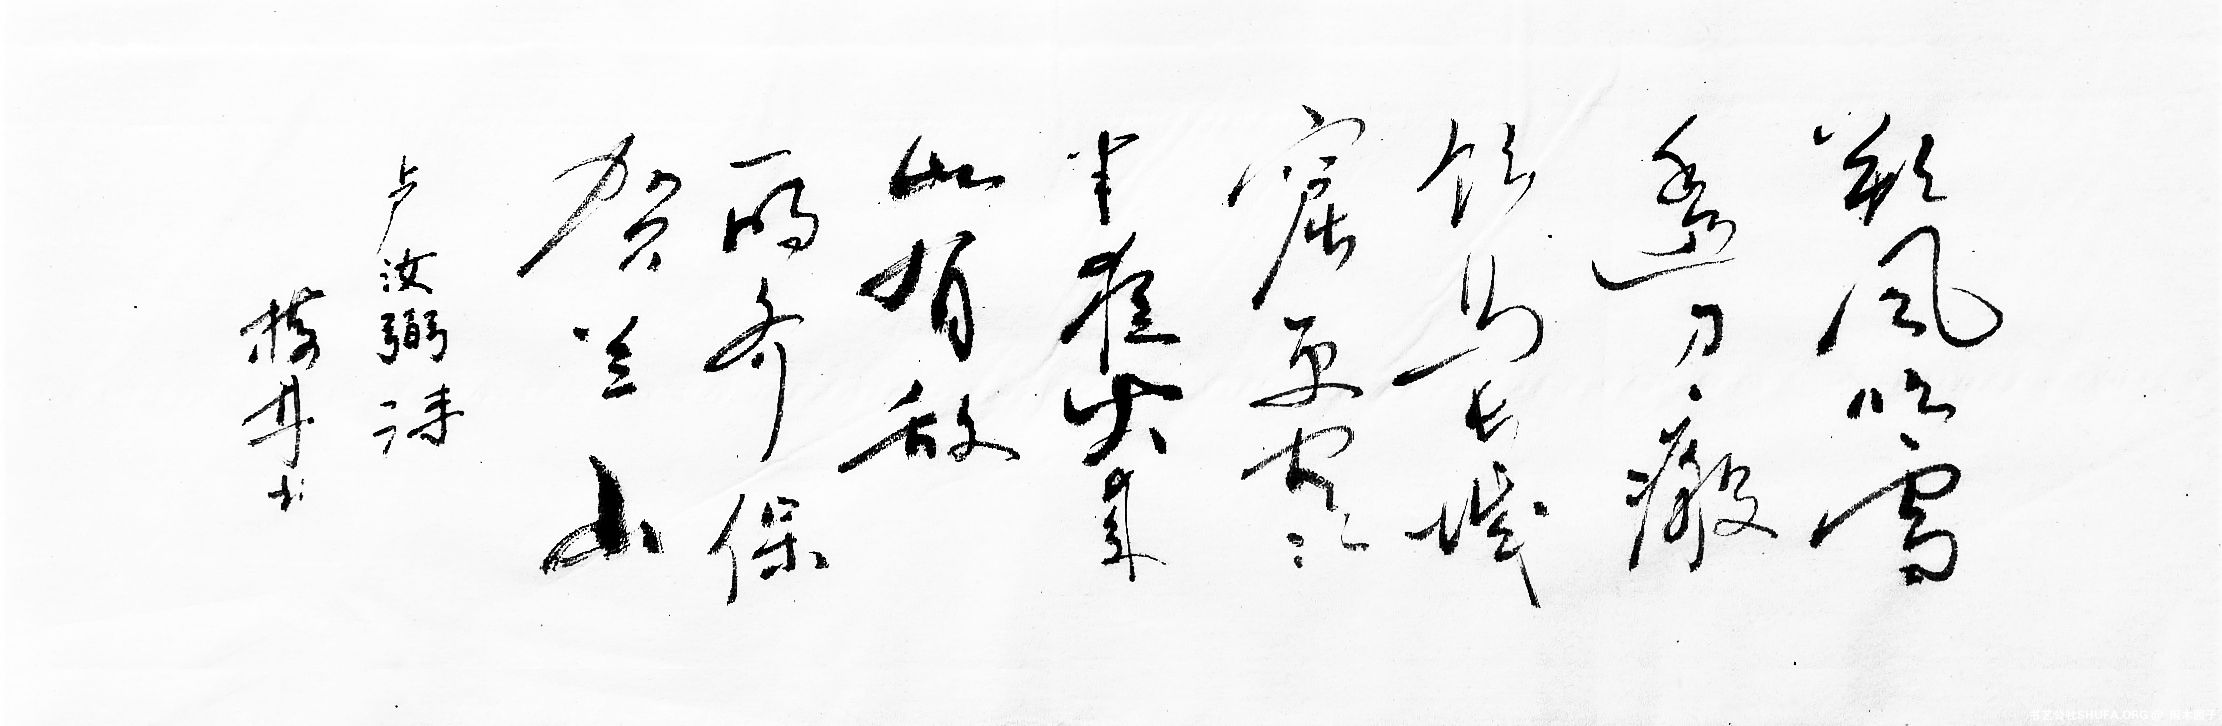 朔风吹雪
透刀瘢
饮马长城
窟更寒
半夜火来
知有敌
一时齐保
贺兰山
卢汝弼诗
书
SHUFA.ORG